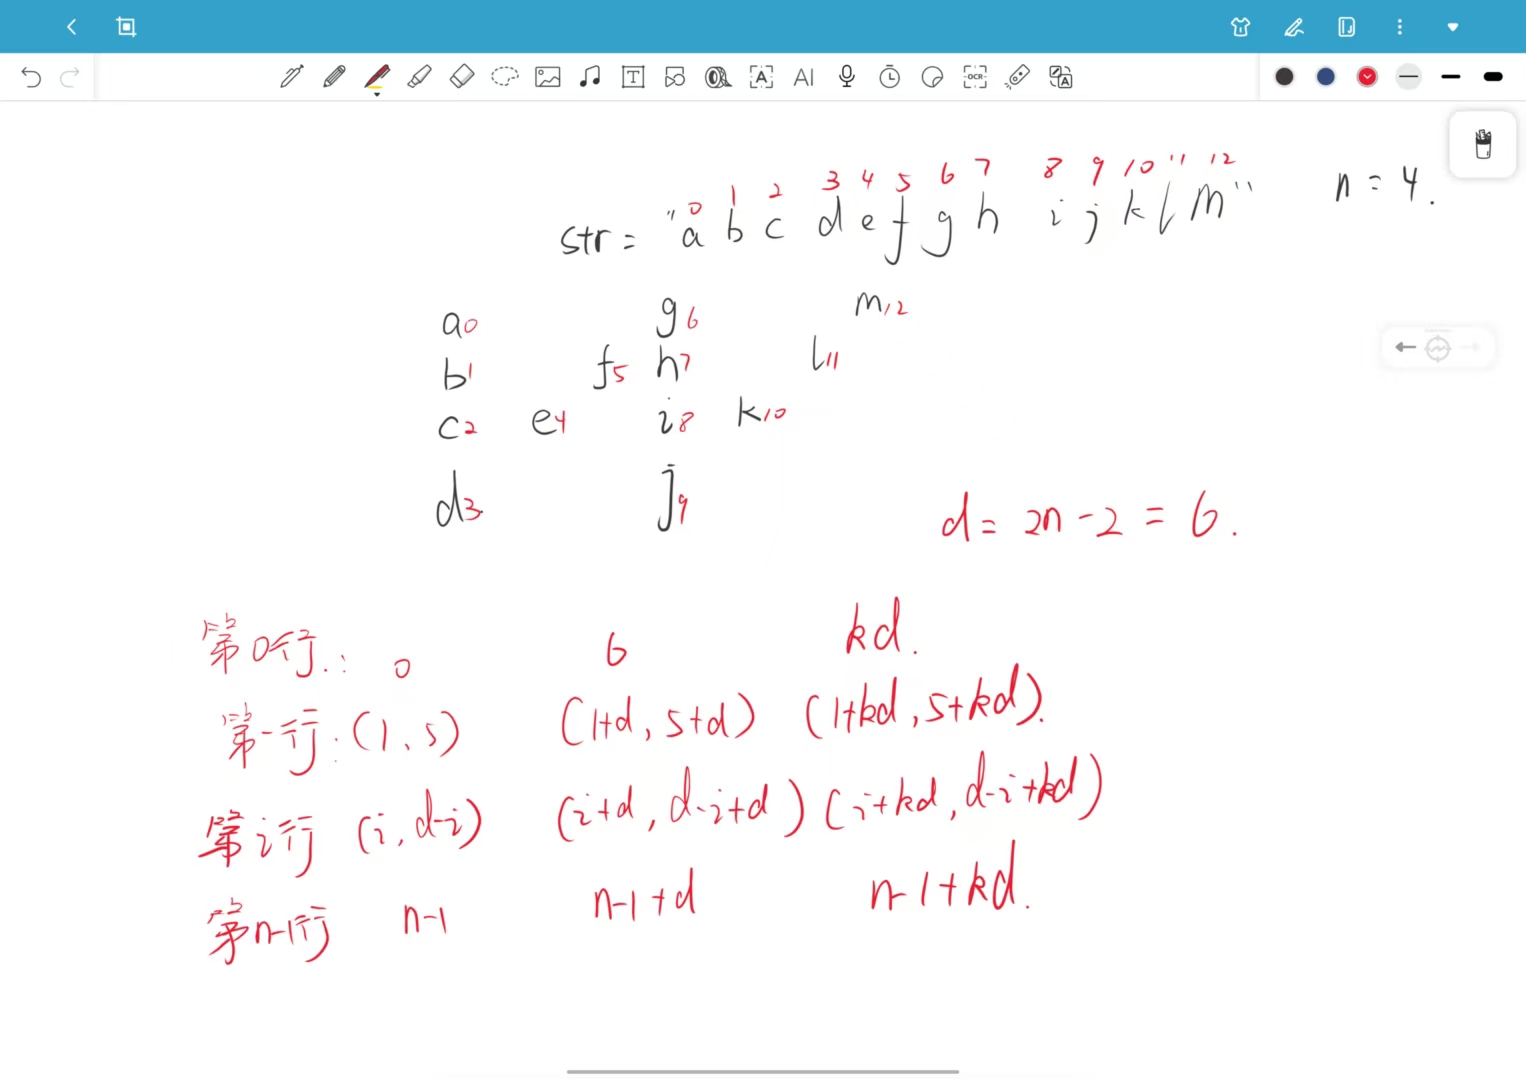 AI
OCR
0 1 2 3 4 5 6 7 8 9 10 11 12
str = "a b c d e f g h i j k l m"
n = 4.
a0 g6 m12
b1 f5 h7 l11
c2 e4 i8 k10
d3 j9
d = 2n - 2 = 6.
第0行.: 0 6 kd.
第一行: (1, 5) (1+d, 5+d) (1+kd, 5+kd).
第i行 (i, d-i) (i+d, d-i+d) (i+kd, d-i+kd)
第n-1行 n-1 n-1+d n-1+kd.